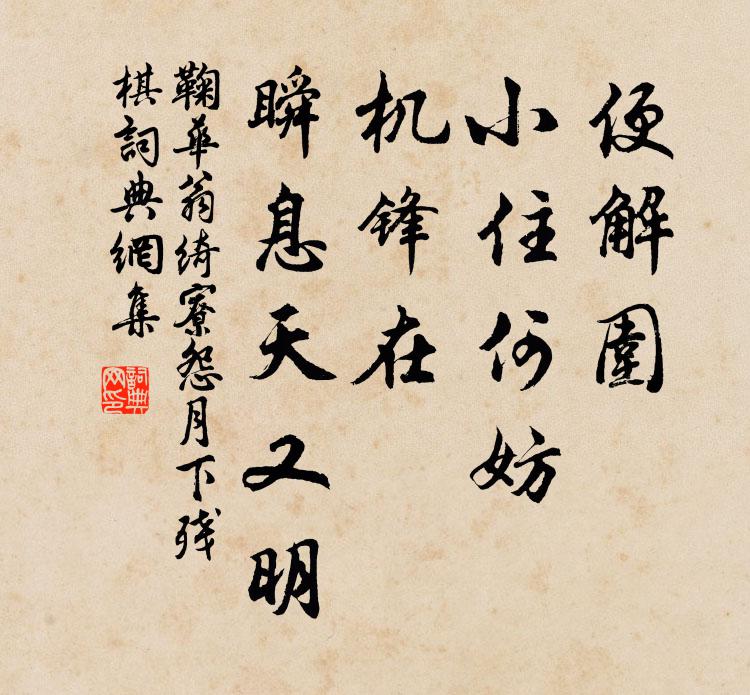 便解圍
小住何妨
机锋在
瞬息天又明
鞠華翁綺寮怨月下残
棋詞典網集
詞典網印